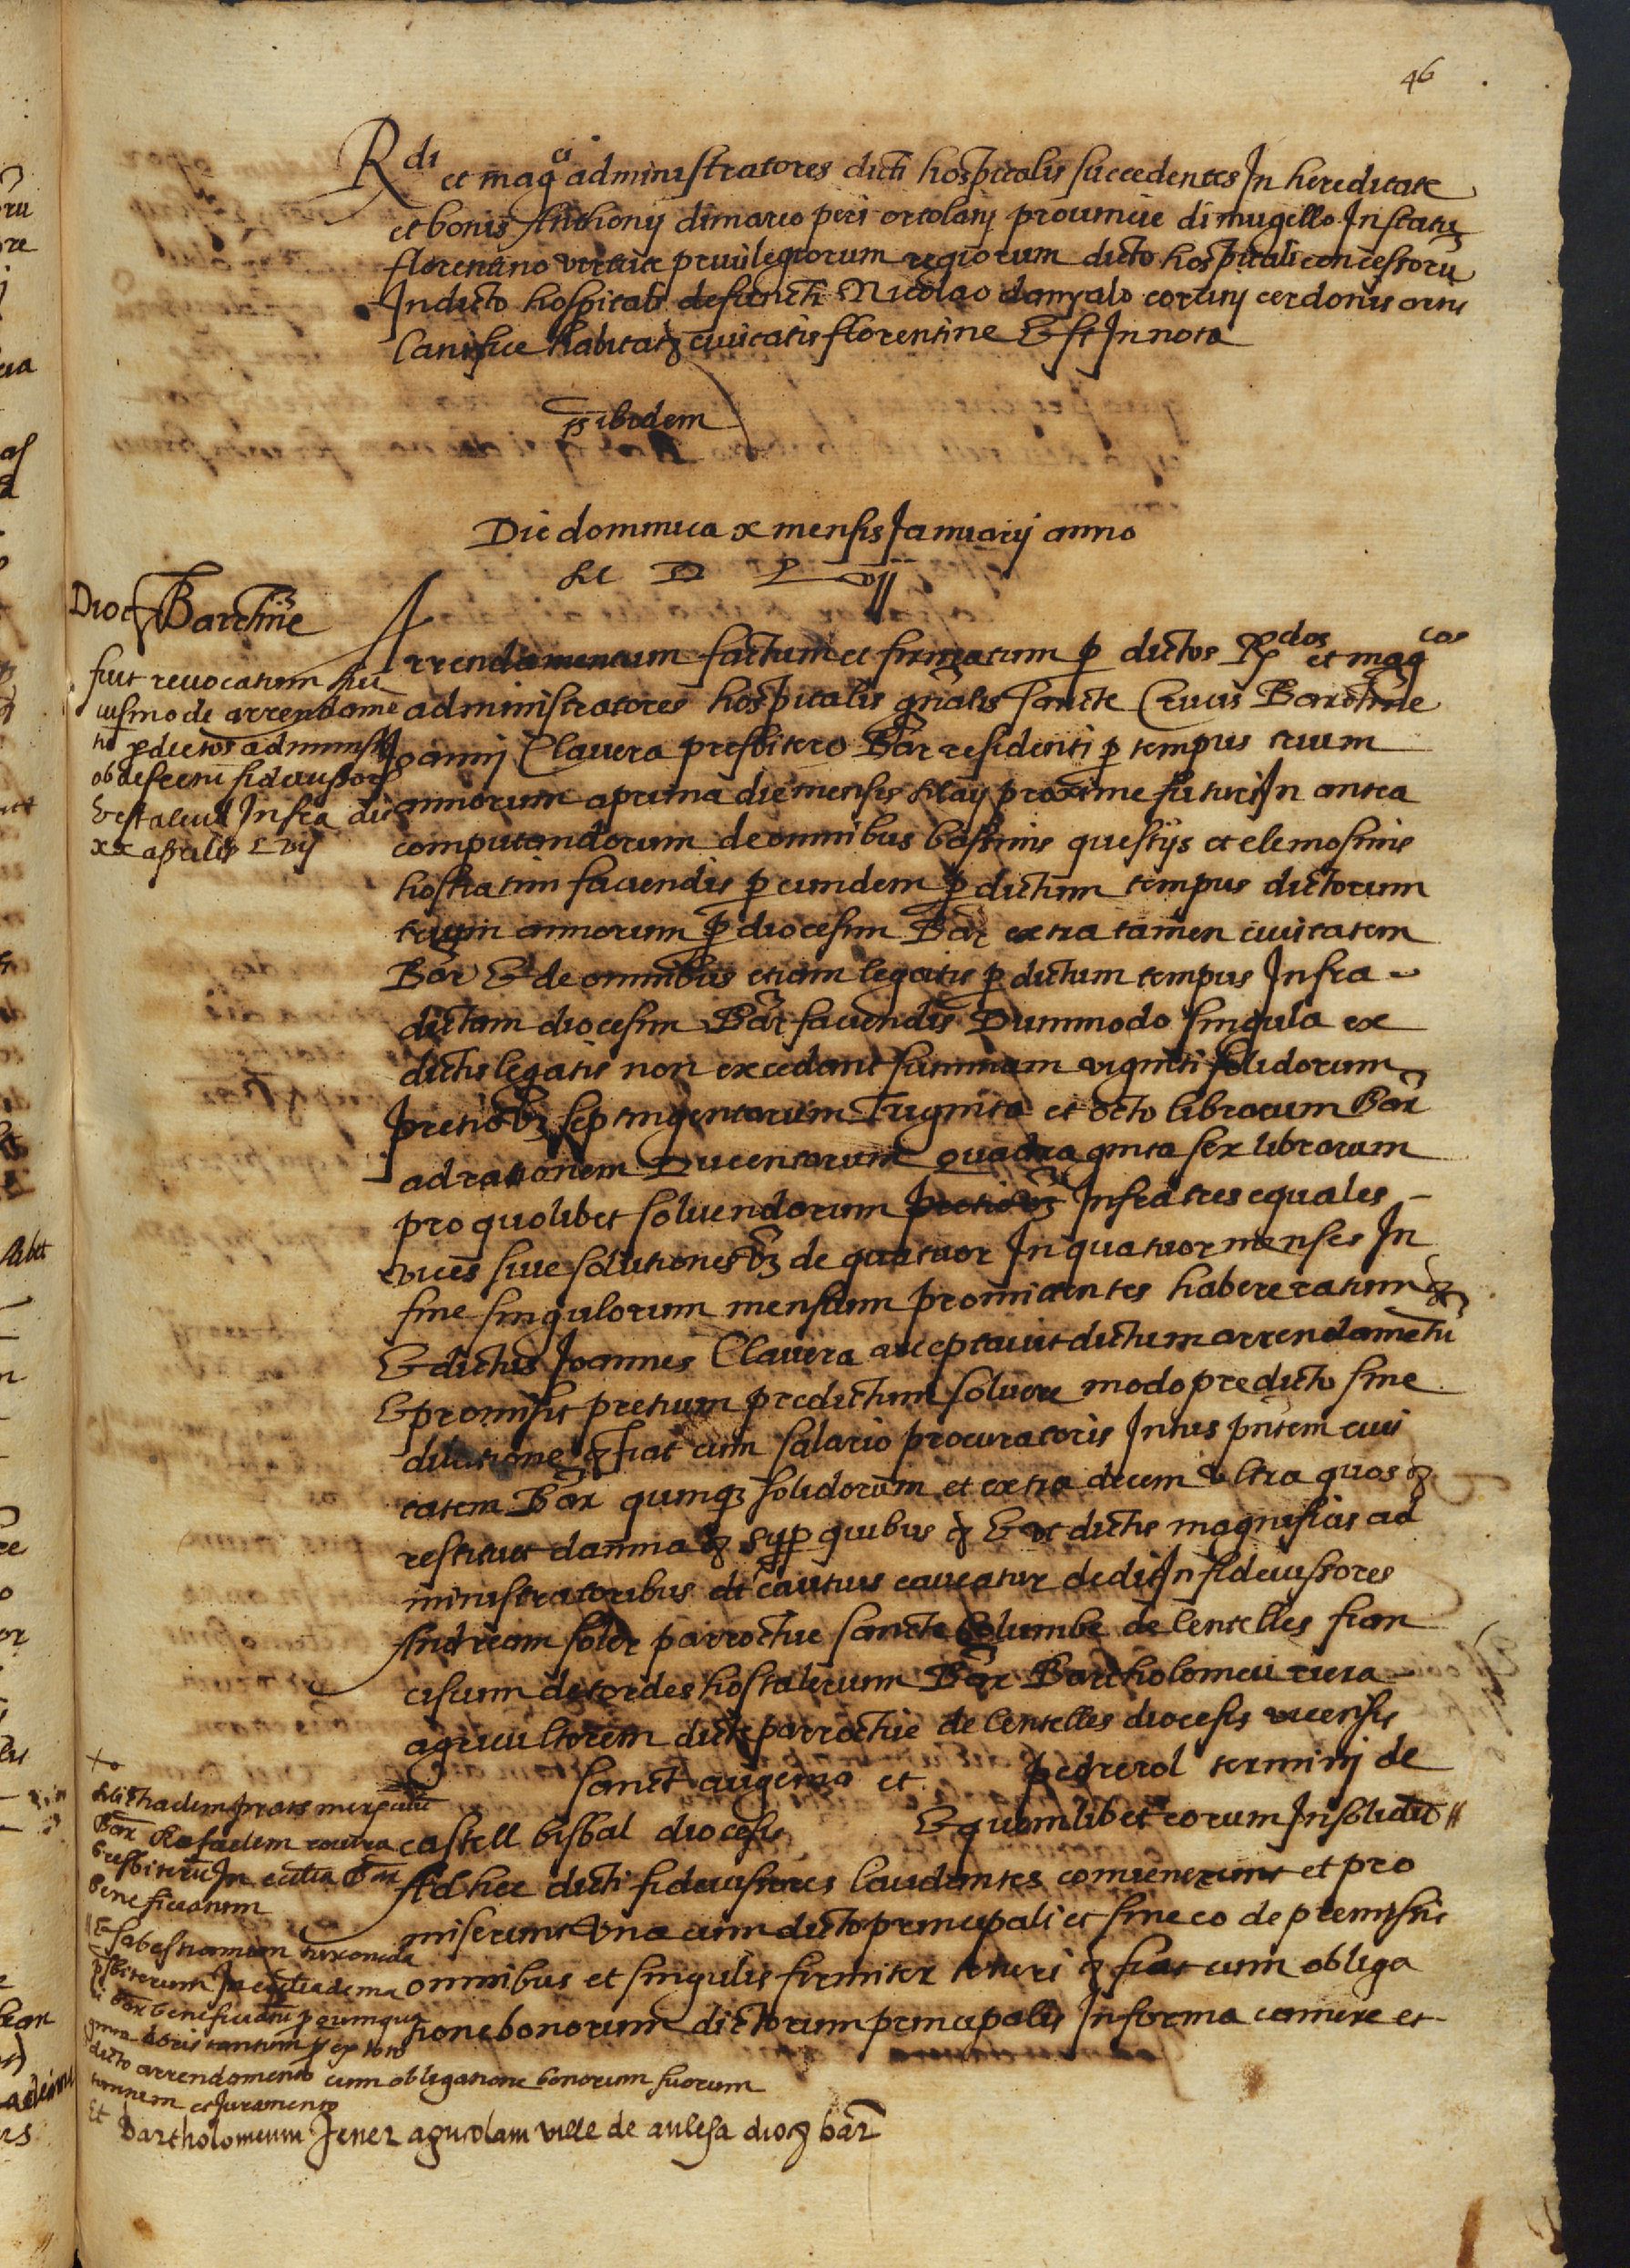 46
Rdi et magci administratores dicti hospitalis succedentes In hereditate
et bonis Anthonij dimarco peri ortolanj provincie di mugello In statu
florentino virtute privilegiorum regiorum dicto hospitali concessoru
In dicto hospitali defuncti Nicolao cerdonis artis
lanifice habitatz civitatis florentine Est In nota
ibidem
Die dominica x mensis Januarij anno
M D L vij
Dioc Barchine
fuit revocatum hu
iusmode arrendame
tu p dictos administ
ob defectu fideiussor
Infra die
xx aprilis L vij
Arrendamentum factum et firmatum p dictos Rdos et magcos
administratores hospitalis gnalis sancte Crucis Barchine
Joannj Clavera presbitero Bar residenti p tempus trium
annorum a prima die mensis Maij proxime futuri In antea
computandorum de omnibus bassinis questijs et elemosinis
hostiatim faciendis p eumdem p dictum tempus dictorum
trium annorum p diocesim Bar extra tamen civitatem
Bar Et de omnibus etiam legatis p dictum tempus Infra
dictam diocesim Bar faciendis Dummodo singula ex
dictis legatis non excedant summam viginti solidorum
pretio vz septingentarum Triginta et octo librarum Bar
ad rationem Ducentarum quadraginta sex librarum
pro quolibet solvendorum pretio vz Infra tres equales
vices sive solutiones vz de quatuor In quatuor menses In
fine singulorum mensium promittentes habere ratum z
Et dictus Joannes Clavera acceptavit dictum arrendametu
Et promisit pretium predictum solvere modo predicto sine
dilatione z Fiat cum salario procuratoris Intus pntem civi
tatem Bar quinqz solidorum et extra decem ultra quos z
restituet damna z sup quibus z Et ut dictis magnificis ad
ministratoribus cautius caveatur dedit In fideiussores
Andream soler parrochie sancte Columbe de Centelles fran
ciscum de tordes hostalerium Bar Bartholomeu riera
agricultorem dicte parrochie de Centelles diocesis vicensis
sanct augenia et pedrerol terminj de
castell bisbal diocesis Et quemlibet eorum In solidu //
Ad hec dicti fideiussores laudantes convenerunt et pro
miserunt una cum dicto principali et sine eo de premissis
omnibus et singulis firmiter teneri z fiat cum obliga
tione bonorum dictorum principalis In forma camere et
Michaelem prats mercatore
Bar Rafaelem rovira
presbiterum In ecclia Bar
beneficiatum
Et sabestianum
psbiterum In ecclia de ma
ri Bar beneficiatum p quinqua
ginta tantum ex toto
dicto arrendamento cum obligatione bonorum suorum
omnium et Juramento
Et Bartholomeum Jener agricolam ville de aulesa dioc bar